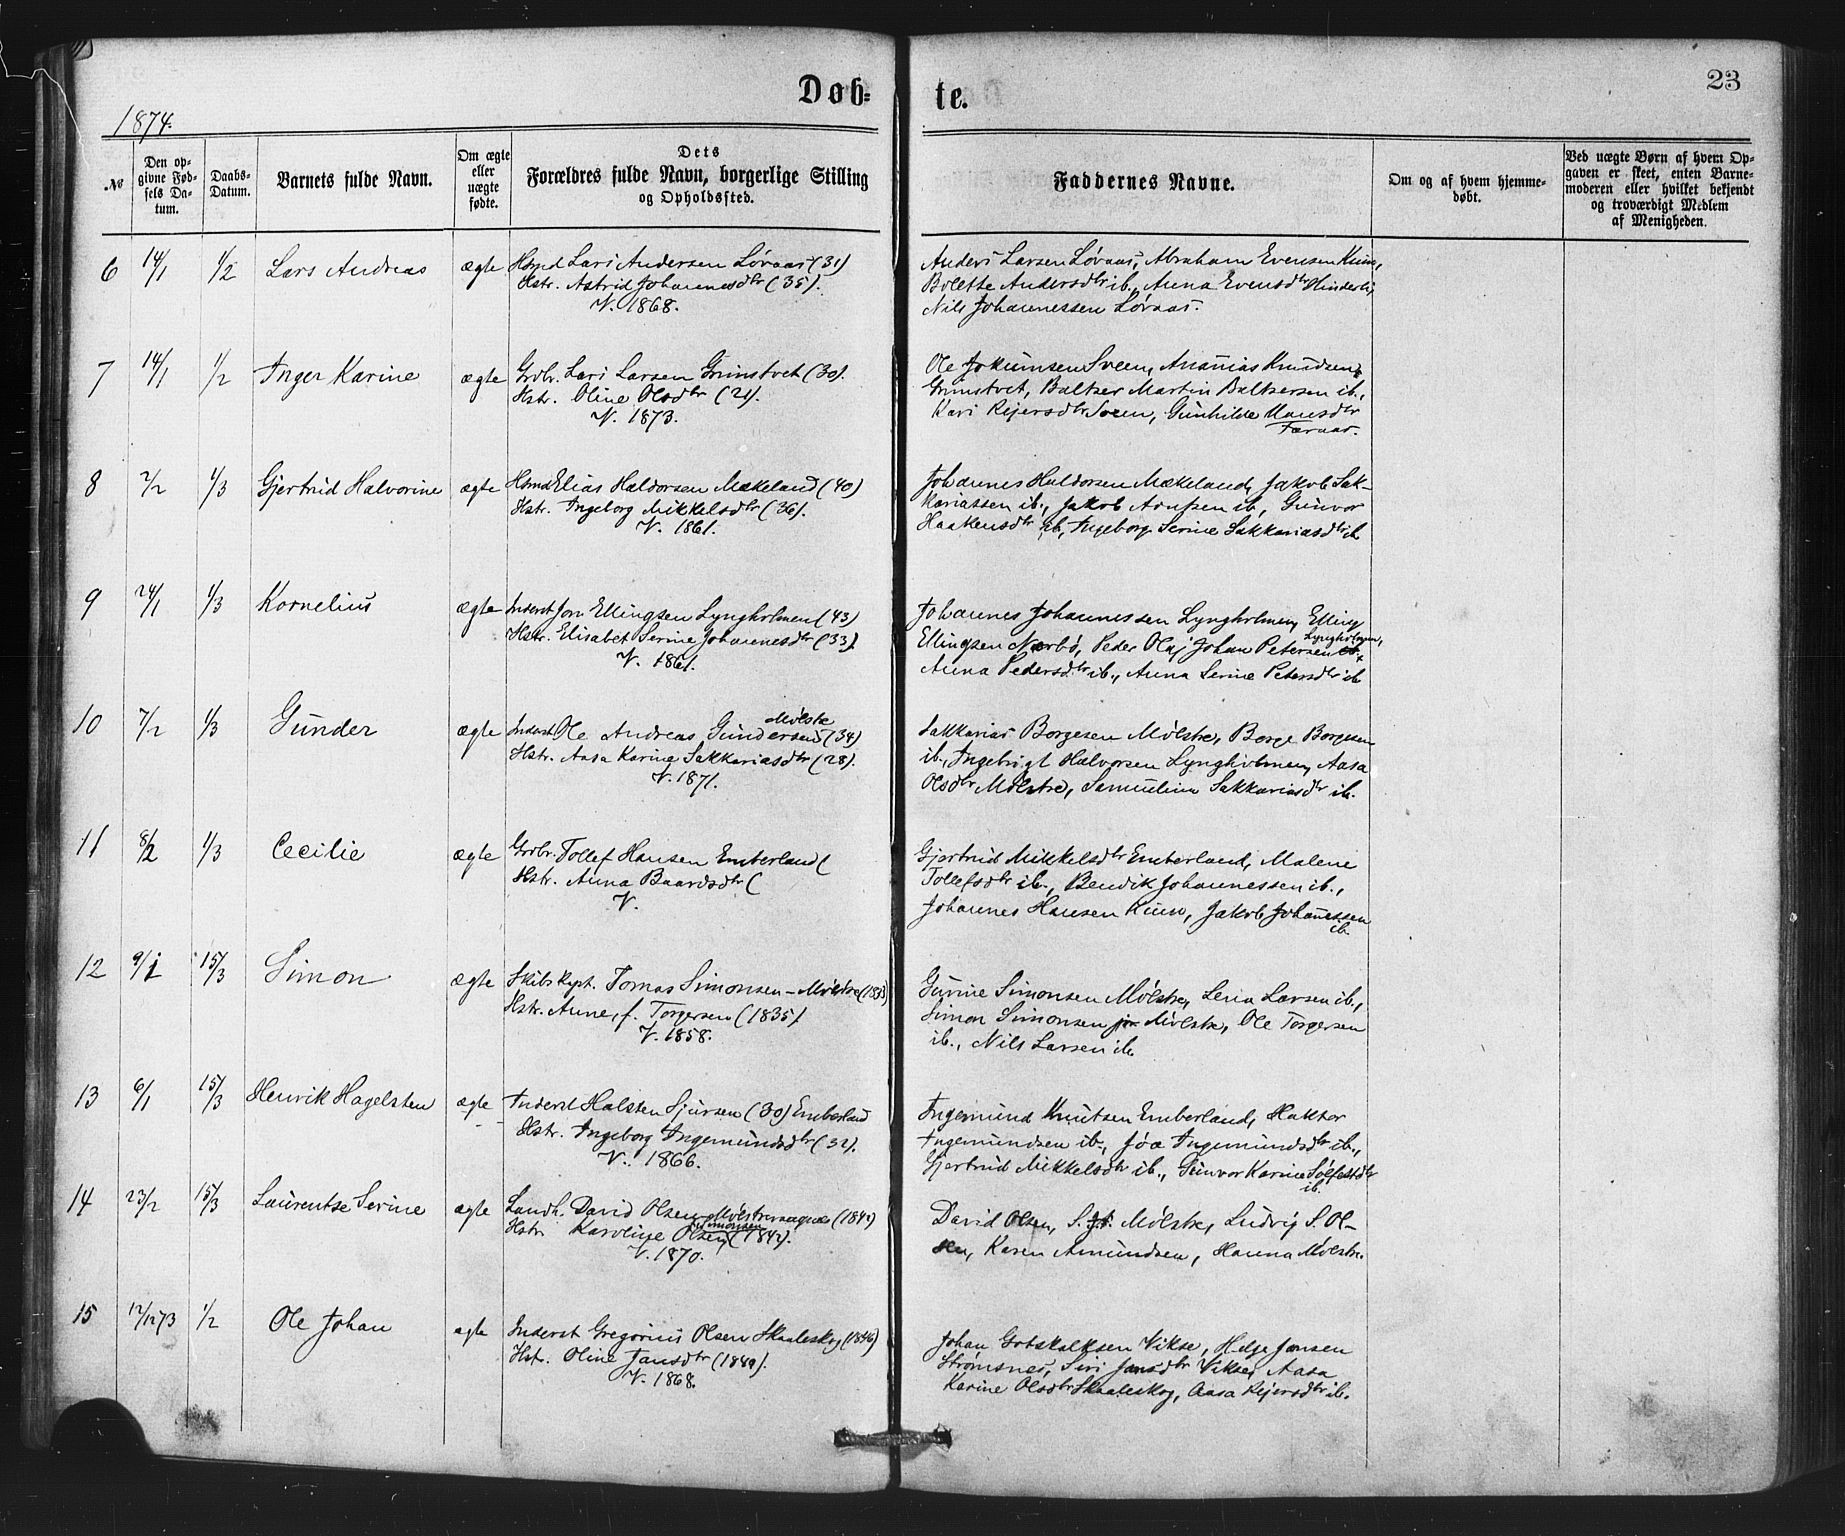 Døb=
te.
23
1874.
№
Den op-
givne Fød-
sels Da-
tum.
Daabs-
Datum.
Barnets fulde Navn.
Om ægte
eller
uægte
fødte.
Dets
Forældres fulde Navn, borgerlige Stilling
og Opholdssted.
Faddernes Navne.
Om og af hvem hjemme-
døbt.
Ved uægte Børn af hvem Op-
gaven er skeet, enten Barne-
moderen eller hvilket bekjendt
og troværdigt Medlem
af Menigheden.
6 14/1 1/2 Lars Andreas ægte Hsmd Lars Andersen Løvaas (31)
Hstr. Astrid Johannesdtr (35).
V. 1868.
Anders Larsen Løvaas, Abraham Evensen
Bolette Andersdtr ib., Anna Evensdtr Hinderli,
Nils Johannessen Løvaas.
7 14/1 1/2 Inger Karine ægte Grdbr. Lars Larsen Grimstvet (30).
Hstr. Oline Olsdtr (21).
V. 1873.
Ole Jokumsen Sveen, Ananias Knudsen
Grimstvet, Baltser Martin Baltsersen ib.,
Kari Rejersdtr Sveen, Gunhilde Hansdtr
Færaas.
8 7/2 1/3 Gjertrud Halvorine ægte Hsmd Elias Haldorsen Mækeland (40)
Hstr. Ingeborg Mikkelsdtr (36).
V. 1861.
Johannes Haldorsen Mækeland, Jakob Sak-
kariassen ib., Jakob ib., Gunvor
Haakensdtr ib., Ingeborg Serine Sakkariasdtr ib
9 24/1 1/3 Kornelius ægte Inderst Jon Ellingsen Lyngholmen (43)
Hstr. Elisabet Serine Johannesdtr (33).
V. 1861.
Johannes Johannessen Lyngholmen, Elling
Ellingsen Nærbø, Peder Olaj Johan Petersen Lyngholmen,
Anna Pedersdtr ib., Anna Serine Petersdtr ib
10 7/2 1/3 Gunder ægte Inderst Ole Andreas Gundersen Mølstre (34)
Hstr. Aasa Karine Sakkariasdtr (28).
V. 1871.
Sakkarias Borgesen Mølstre, Borge Borgesen
ib., Ingebrigt Halvorsen Lyngholmen, Aasa
Olsdtr Mølstre, Samueline Sakkariasdtr ib.
11 8/2 1/3 Cecilie ægte Grdbr. Tollef Hansen Emberland (
Hstr. Anna Baardsdtr (
V.
Gjertrud Mikkelsdtr Emberland, Malene
Tollefsdtr ib., Bendik Johannessen ib.,
Johannes Hansen, Jakob Johannessen
ib.
12 9/1 15/3 Simon ægte Skibskapt. Tomas Simonsen - Mølstre
Hstr. Anne, f. Torgersen (1835).
V. 1858.
Gurine Simonsen Mølstre, Lena Larsen ib.,
Simon Simonsen jr. Mølstre, Ole Torgersen
ib., Nils Larsen ib
13 6/1 15/3 Henrik Hagelsten ægte Inderst Halsten Sjursen (30) Emberland
Hstr. Ingeborg Ingemundsdtr (32).
V. 1866.
Ingemund Knutsen Emberland, Haktor
Ingemundsen ib., Joa Ingemundsdtr ib.,
Gjertrud Mikkelsdtr ib., Gunvor Karine Solfestdtr
ib.
14 23/2 15/3 Laurentse Serine ægte Landh. David Olsen Mølstrevaagen
Hstr Karoline Olsen, f. Simonsen (1842).
V. 1870.
David Olsen, S. Mølstre, Ludvig S. Ol-
sen, Karen Amundsen, Hanna Mølstre.
15 12/12 73 1/2 Ole Johan ægte Inderst Gregorius Olsen Skaaleskog (1846)
Hstr. Oline Jansdtr
V. 1868.
Johan Gotskalksen Vikse, Helge Jansen
Strømsnes, Siri Jansdtr Vikse, Aasa
Karine Olsdtr Skaaleskog, Aasa Rejersdtr ib.